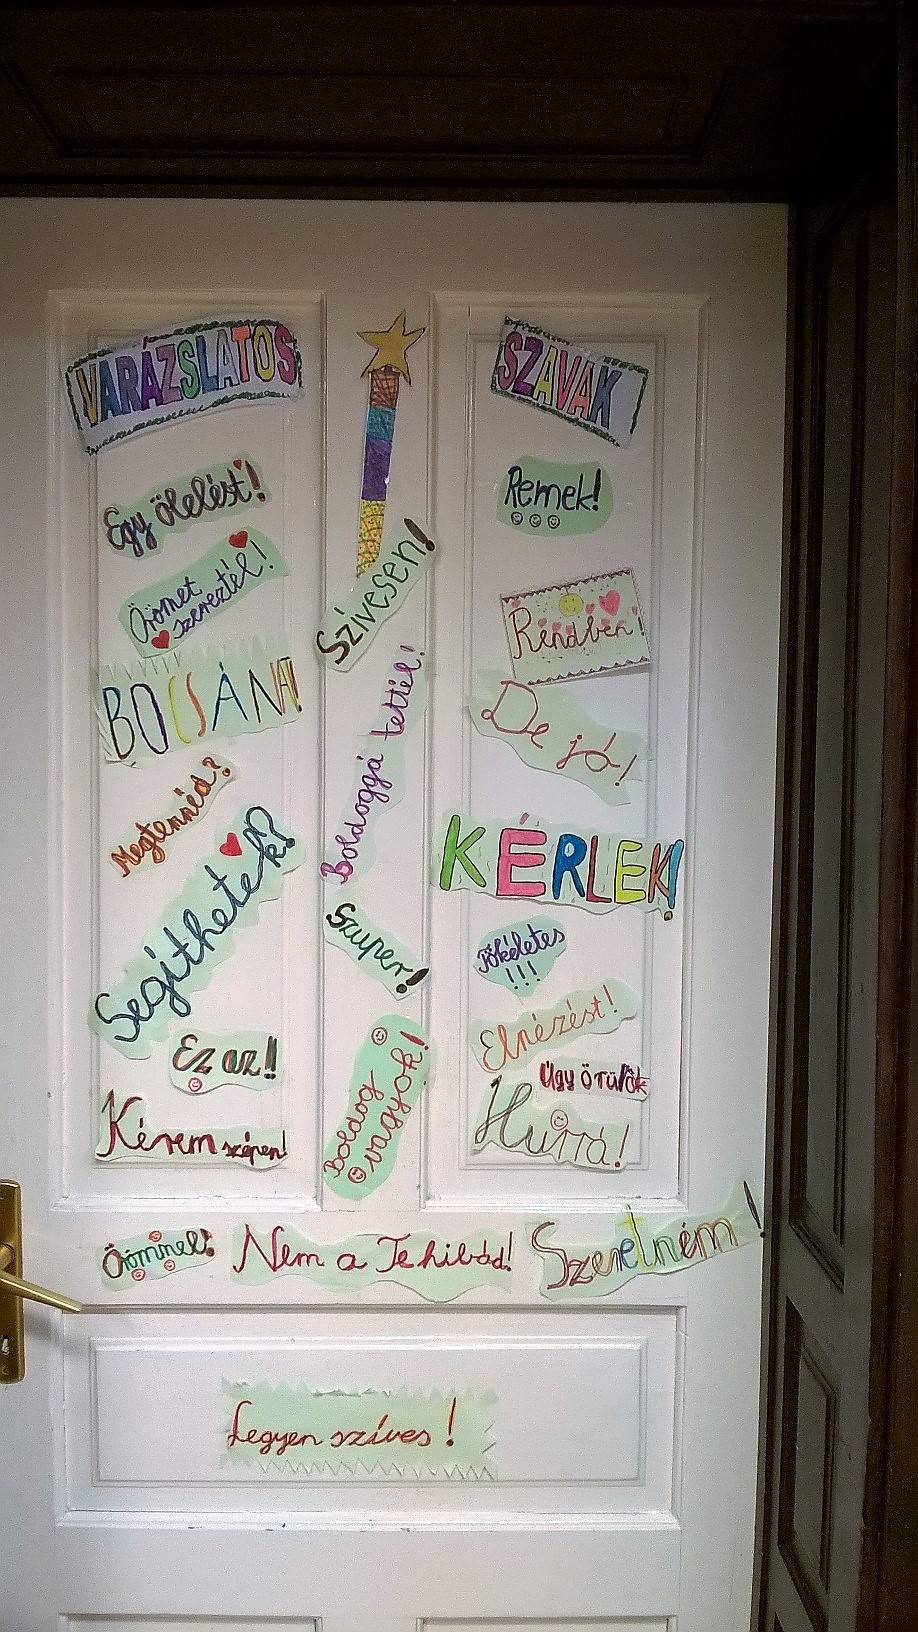 VARÁZSLATOS
SZAVAK
Egy ölelést!
Örömet
szereztél!
BOCSÁNAT!
Megtennéd?
Segíthetek?
Ez az!!
Kérem szépen!
Szívesen!
Boldoggá tettél!
Szuper!
Boldog
vagyok!
Remek!
Rendben!
De jó!
KÉRLEK!
Tökéletes
!!!
Elnézést!
Úgy örülök
Hurrá!
Örömmel!
Nem a Te hibád!
Szeretném!
Legyen szíves!